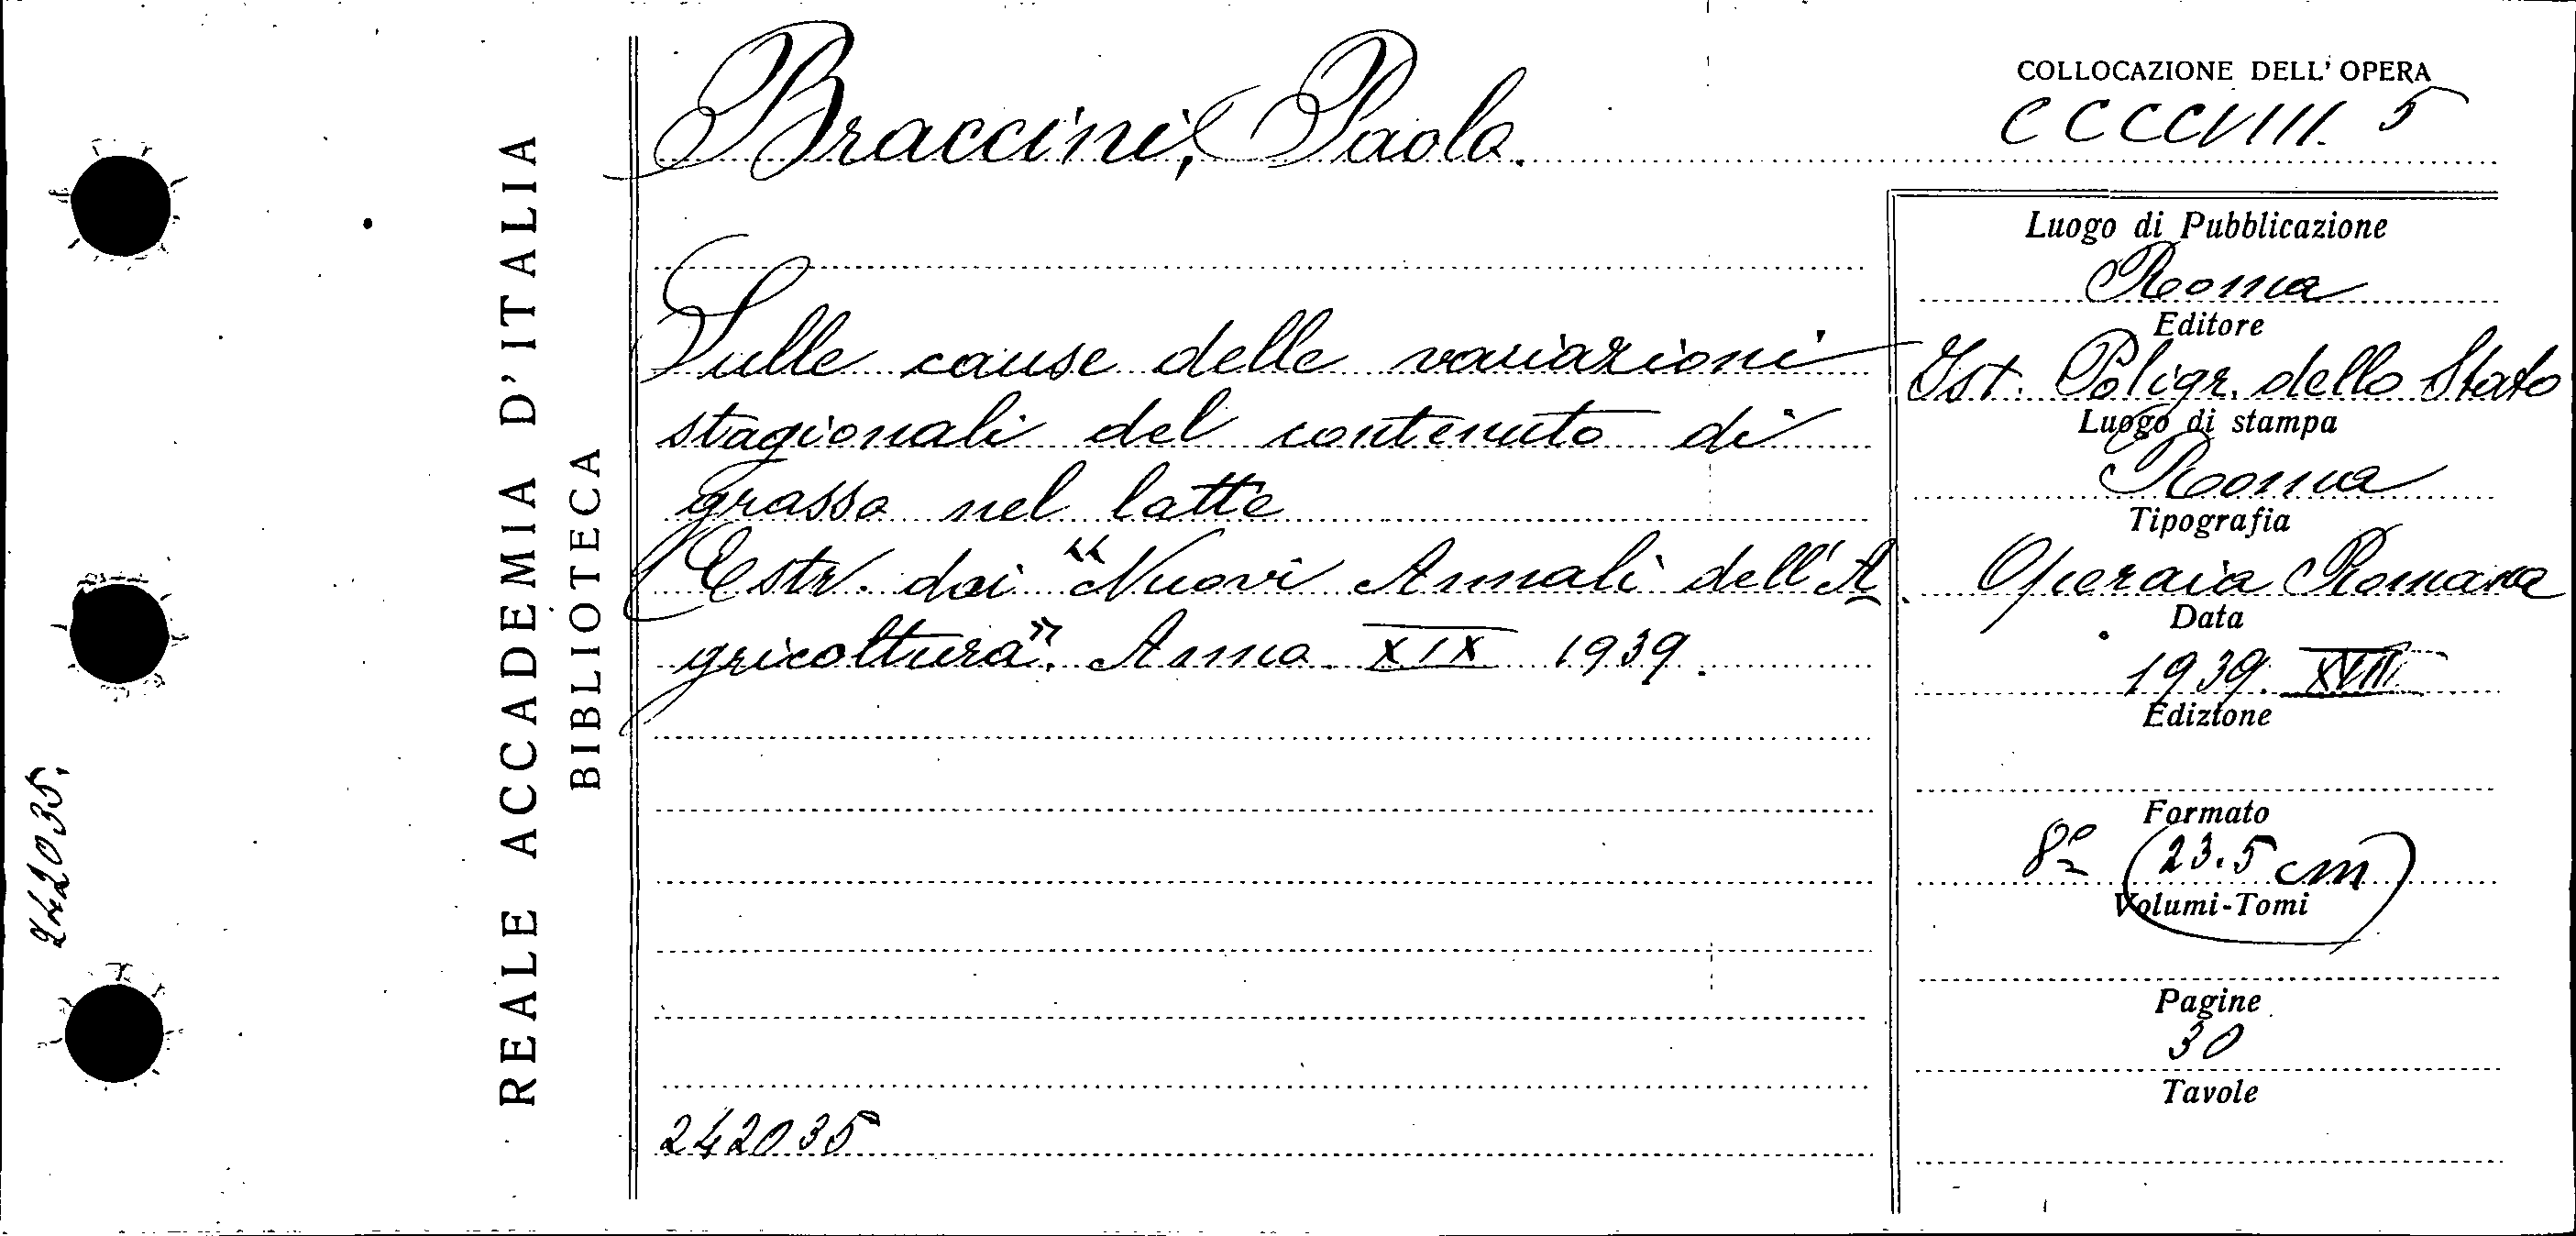 REALE ACCADEMIA D'ITALIA
BIBLIOTECA
242035.
Braccini, Paolo.
Sulle cause delle variazioni
stagionali del contenuto di
grasso nel latte
(Estr. dai "Nuovi Annali dell'A
gricoltura". Anno XIX 1939.
242035
COLLOCAZIONE DELL'OPERA
CCCCVIII. 5
Luogo di Pubblicazione
Roma
Editore
Ist. Poligr. dello Stato
Luogo di stampa
Roma
Tipografia
Operaia Romana
Data
1939. XVII
Edizione
Formato
8º (23.5 cm)
Volumi-Tomi
Pagine
30
Tavole